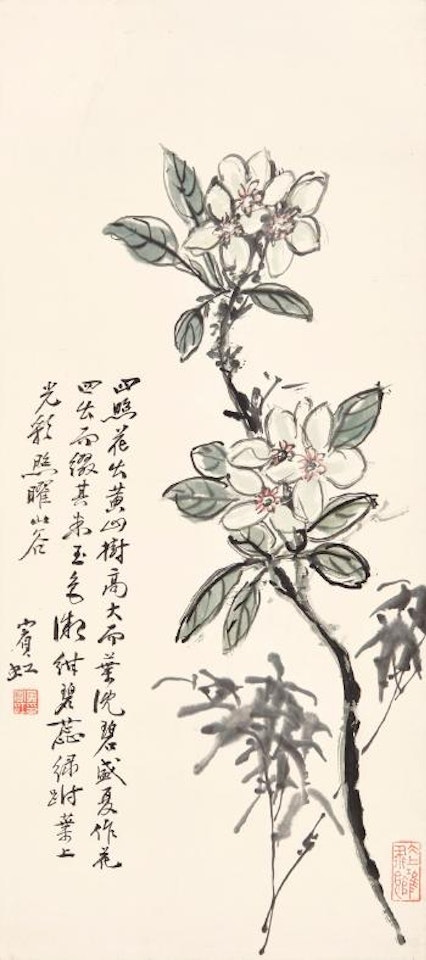 四照花出黄山樹高大而葉沈碧盛夏作花
四出而綴其末玉色微紺碧蕊綠跗葉上
光彩照曜山谷
賓虹